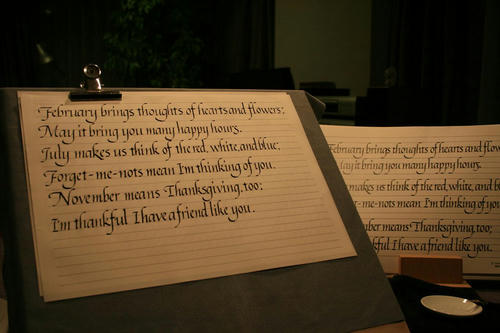 February brings thoughts of hearts and flowers;
May it bring you many happy hours.
July makes us think of the red, white, and blue;
Forget-me-nots mean I'm thinking of you.
November means Thanksgiving, too;
I'm thankful I have a friend like you.
February brings thoughts of hearts and flow
ay it bring you many happy hours.
makes us think of the red, white, and b
t-me-nots mean I'm thinking of you
ber means Thanksgiving, too;
kful I have a friend like you.